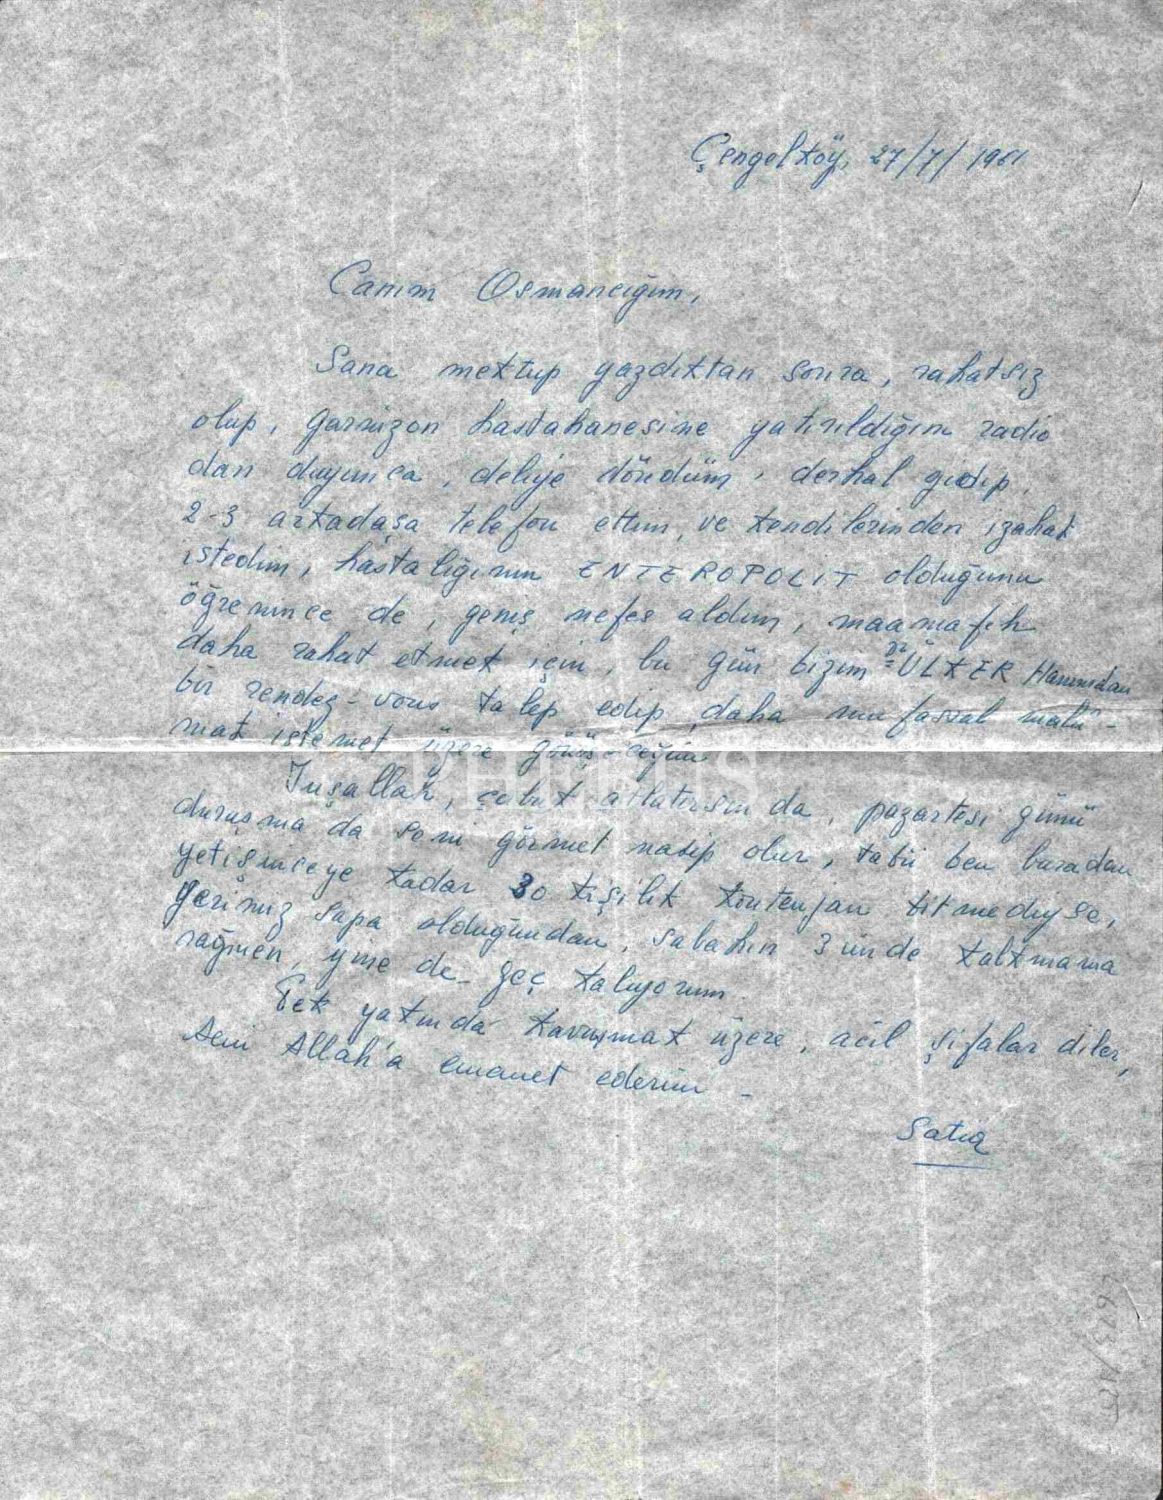 Çengelköy, 27/7/1961
Canım Osmancığım,
Sana mektup yazdıktan sonra, rahatsız
olup, garnizon hastahanesine yatırıldığını radio
dan duyunca, deliye döndüm, derhal gidip,
2-3 arkadaşa telefon ettim, ve kendilerinden izahat
istedim, hastalığının ENTEROPOLIT olduğunu
öğrenince de, geniş nefes aldım, maamafih
daha rahat etmek için, bu gün bizim Dr ÜLKER Hanımdan
bir rendez-vous talep edip daha mufassal malû-
mat istemek üzere görüşeceğim
İnşallah, çabuk atlatırsın da, pazartesi günü
duruşma da seni görmek nasip olur, tabii ben buradan
yetişinceye kadar 30 kişilik kontenjan bitmediyse,
Yerimiz sapa olduğundan, sabahın 3 ünde kalkmama
rağmen, yine de geç kalıyorum
Pek yakında kavuşmak üzere, acil şifalar diler,
seni Allah'a emanet ederim -
PHEBUS